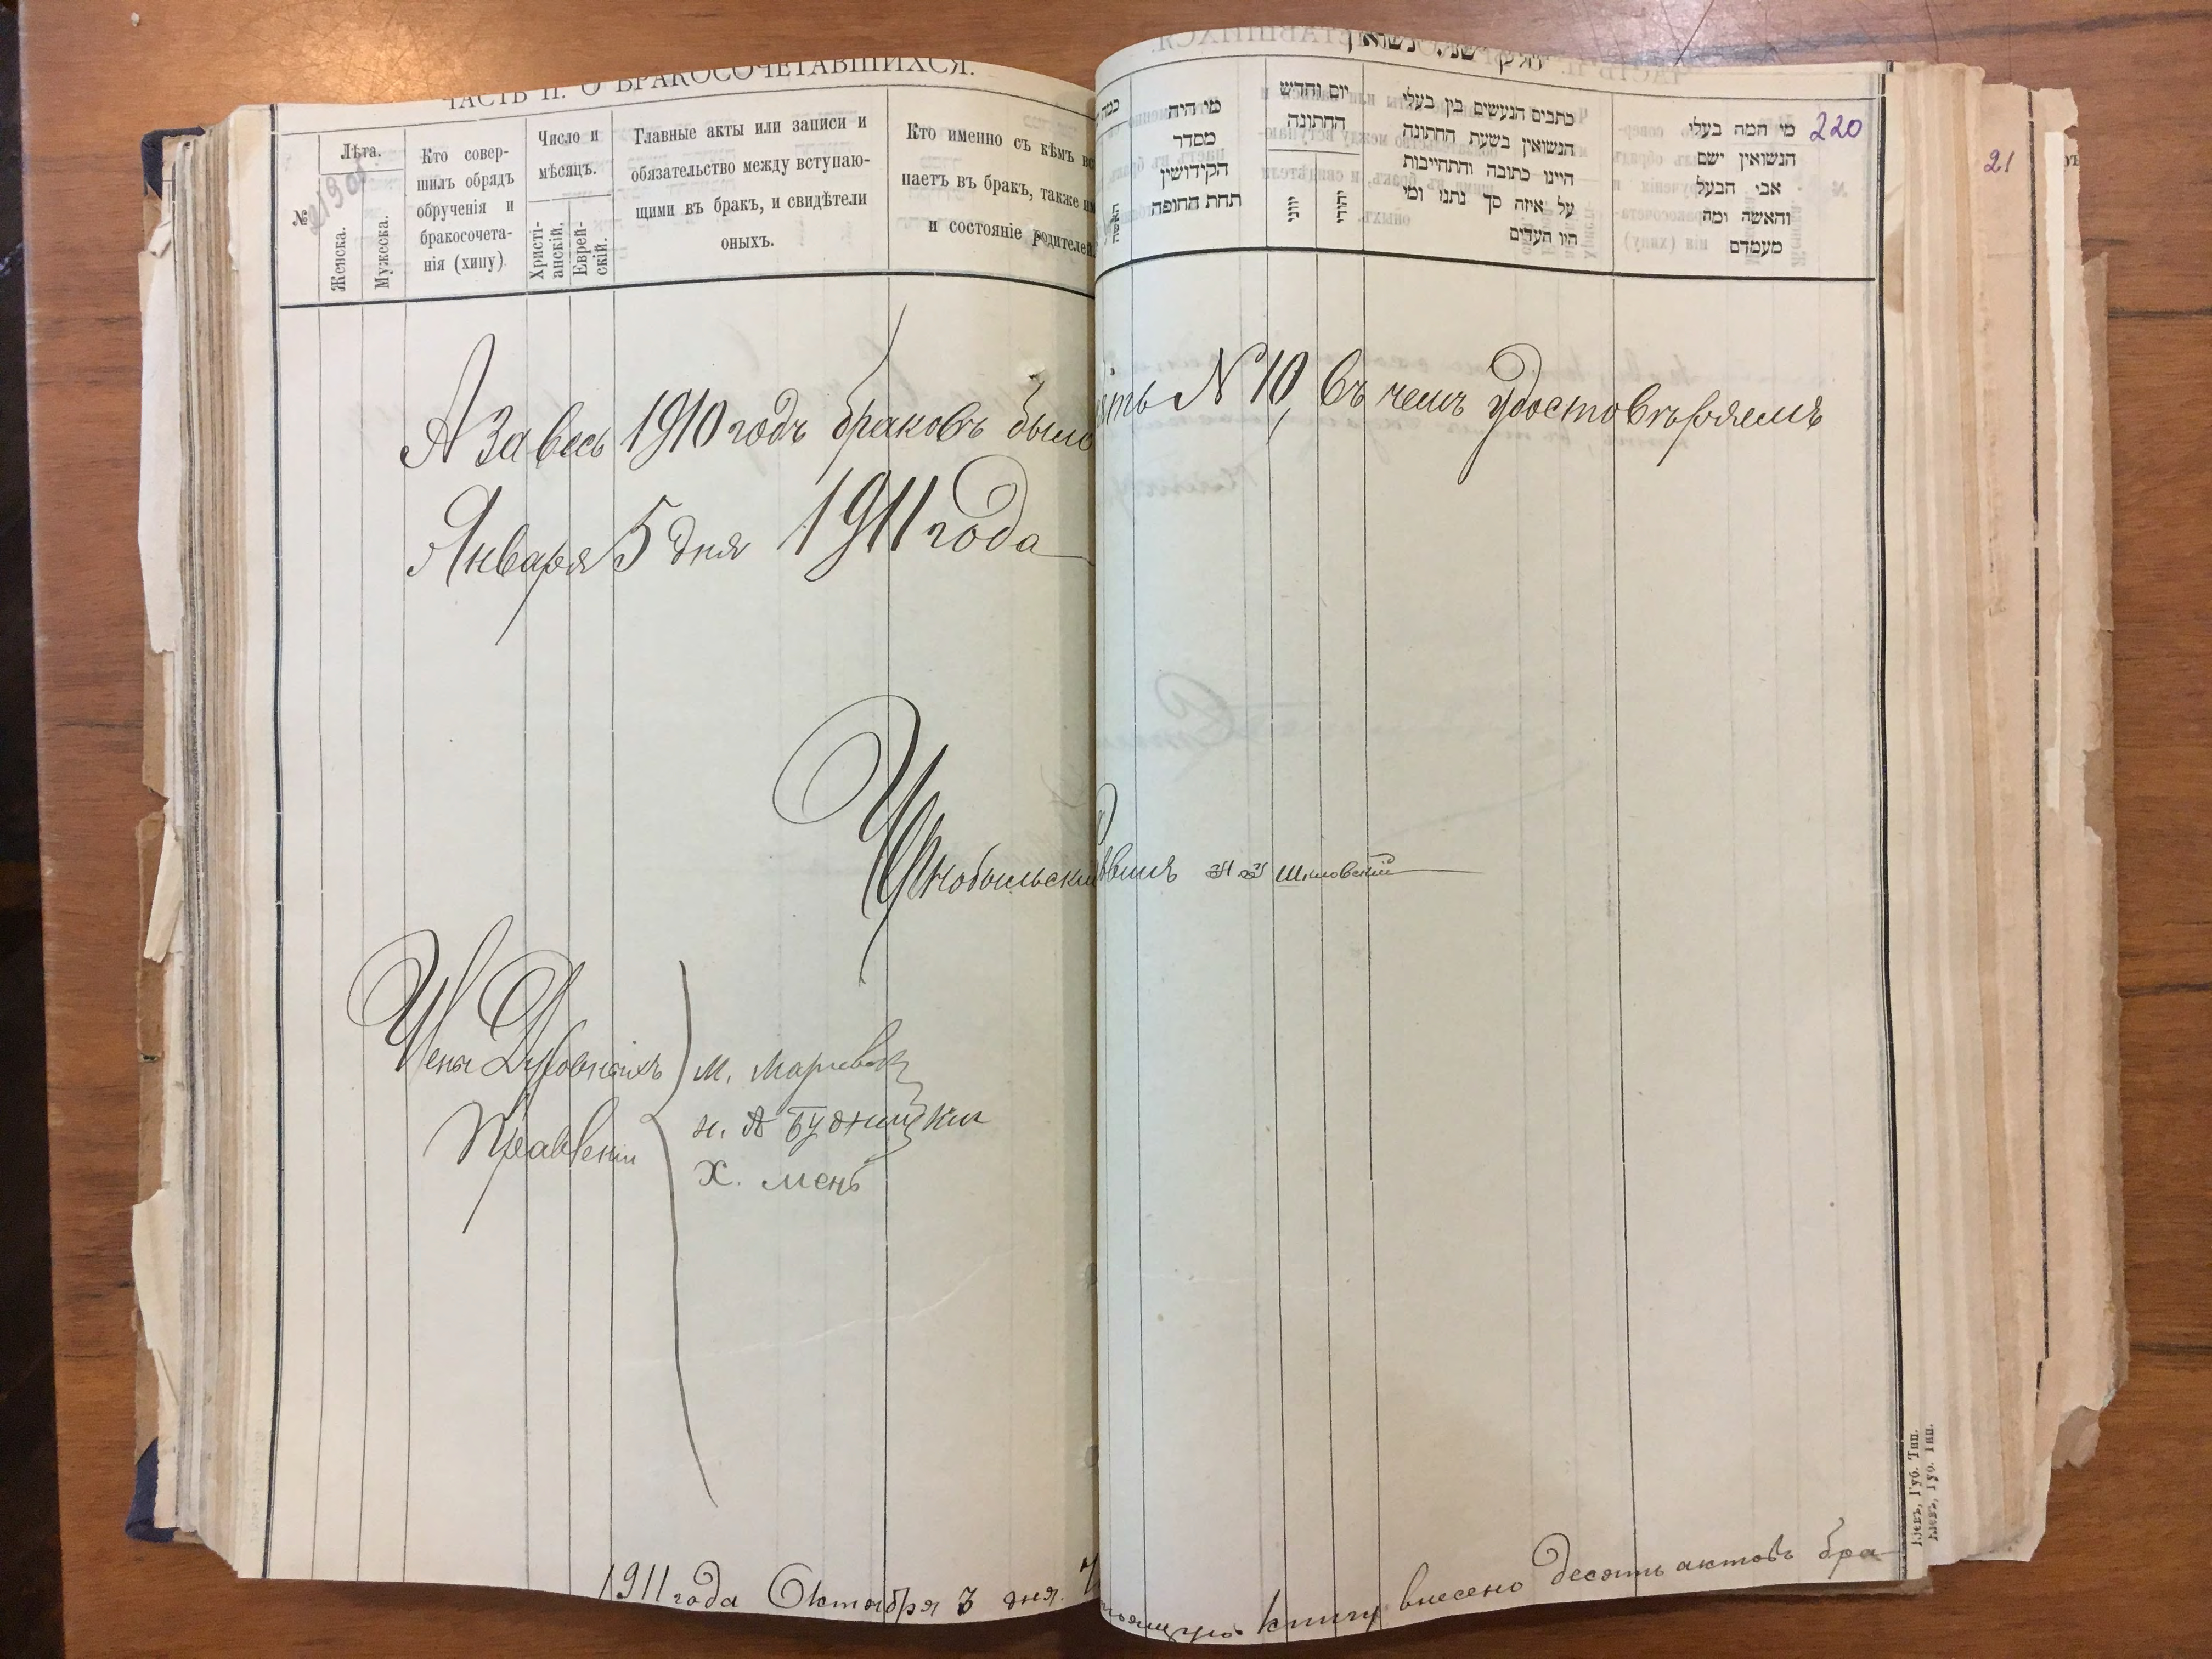 ЧАСТЬ II. О БРАКОСОЧЕТАВШИХСЯ.
№
Лѣта.
Женска.
Мужеска.
Кто совер-
шилъ обрядъ
обрученія и
бракосочета-
нія (хипу)
Число и
мѣсяцъ.
Христі-
анскій.
Еврей-
скій.
Главные акты или записи и
обязательство между вступаю-
щими въ бракъ, и свидѣтели
оныхъ.
Кто именно съ кѣмъ вс
паетъ въ бракъ, также им
и состояніе родителей
חלק שני נשואין
כמה
האשה
מי היה
מסדר
הקידושין
תחת החופה
יום וחדש
החתונה
יווני
יהודי
כתבים הנעשים בין בעלי
הנשואין בשעת החתונה
היינו כתובה והתחייבות
על איזה סך נתנו ומי
היו העדים
מי המה בעלי
הנשואין ושם
אבי הבעל
והאשה ומה
מעמדם
220
21
А За весь 1910 годъ браковъ было
ять № 10, въ чемъ удостовѣряемъ
Января 5 дня 1911 года
Шкловскій
Духовныхъ
М.
Н. А Будницкій
Х. Менъ
1911 года Октября 3 дня.
тоящую книгу внесено десять актовъ бра-
Кіевъ, Губ. Тип.
Кіевъ, Губ. Тип.